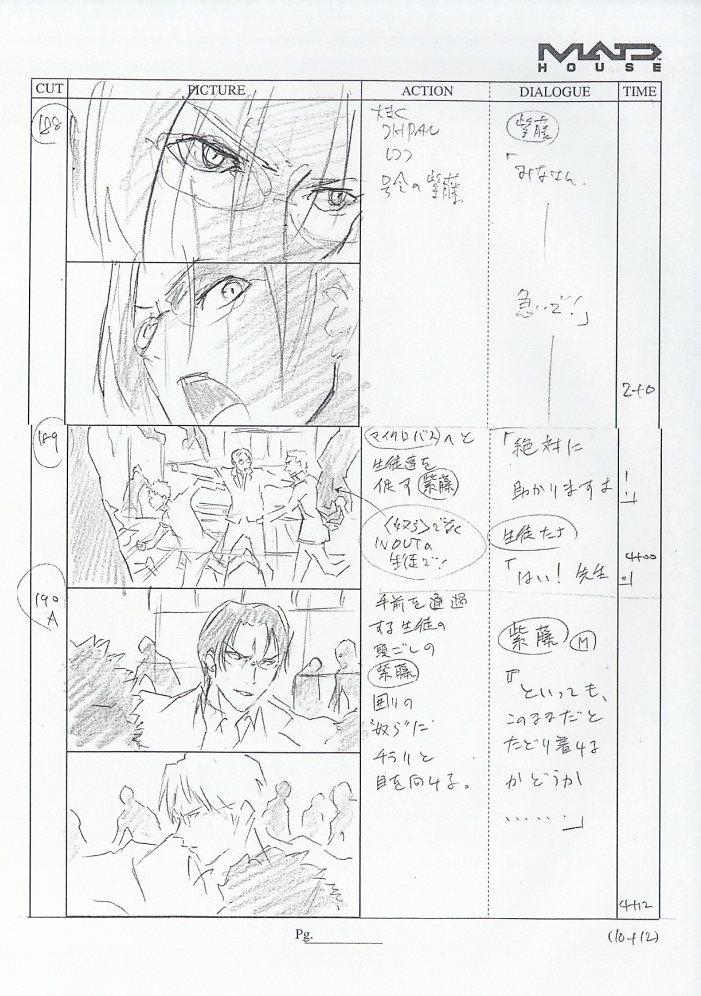 MADHOUSE
CUT PICTURE ACTION DIALOGUE TIME
188
号令の紫藤
紫藤
「みなさん、
急いで!」
2+0
189
マイクロバスへと
生徒達を
促す紫藤
〈奴ら〉でなく
IN OUTの
生徒で!
「絶対に
助かりますよ
生徒たち
「はい! 先生
4+00
190
A
手前を通過
する生徒の
頭ごしの
紫藤
囲りの
"奴ら"に
チラリと
目を向ける。
紫藤 M
『といっても、
このままだと
たどり着ける
かどうか
……』
4+12
Pg.
(10+12)